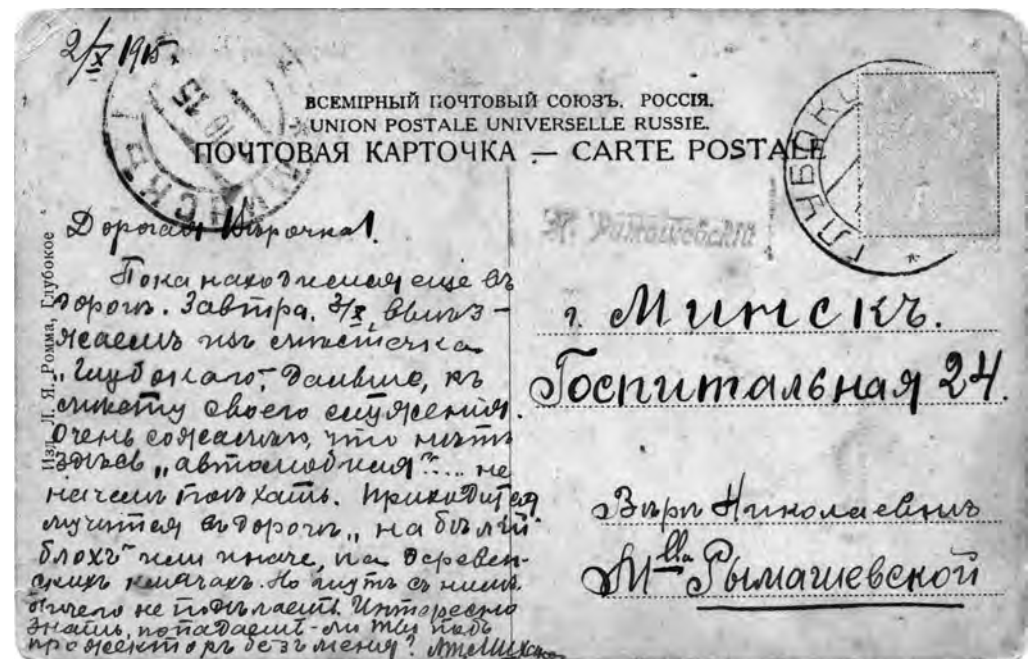 2/X 1915 г.
ВСЕМІРНЫЙ ПОЧТОВЫЙ СОЮЗЪ. РОССІЯ.
UNION POSTALE UNIVERSELLE RUSSIE.
ПОЧТОВАЯ КАРТОЧКА — CARTE POSTALE
МИНСКЪ
10 15
ГЛУБОКО
Изд. Л. Я. Ромма, Глубокое
Дорогая Вѣрочка!
Пока находимся еще въ
дорогѣ. Завтра, 3/X, выѣз-
жаемъ изъ мѣстечка
„Глубокаго", дальше, къ
мѣсту своего служенія.
Очень сожалѣю, что нѣтъ
здѣсь „автомобиля"... не
на чемъ поѣхать. Приходится
мучится въ дорогѣ „на бѣлый
блохъ" или иначе, на деревен-
скихъ клячахъ. Но съ ними
ничего не подѣлаешь. Интересно
знать, попадаешь-ли ты подъ
прожекторъ безъ меня?
г. Минскъ.
Госпитальная 24.
Вѣрѣ Николаевнѣ
М-lla Рымашевской